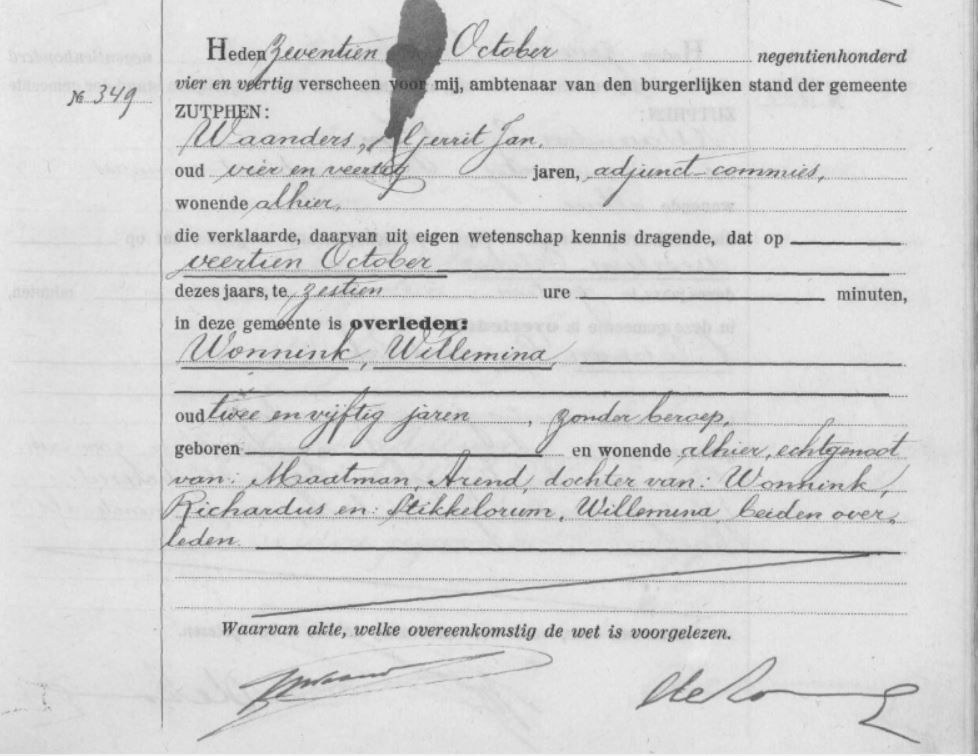 Heden zeventien October negentienhonderd
№ 349 vier en veertig verscheen voor mij, ambtenaar van den burgerlijken stand der gemeente
ZUTPHEN:
Waanders, Gerrit Jan,
oud vier en veertig jaren, adjunct-commies,
wonende alhier,
die verklaarde, daarvan uit eigen wetenschap kennis dragende, dat op
veertien October
dezes jaars, te zestien ure minuten,
in deze gemeente is overleden:
Wonnink, Willemina
oud twee en vijftig jaren, zonder beroep,
geboren en wonende alhier, echtgenoot
van: Maatman, Arend, dochter van: Wonnink,
Richardus en: Stikkelorum, Willemina, beiden over-
leden.
Waarvan akte, welke overeenkomstig de wet is voorgelezen.